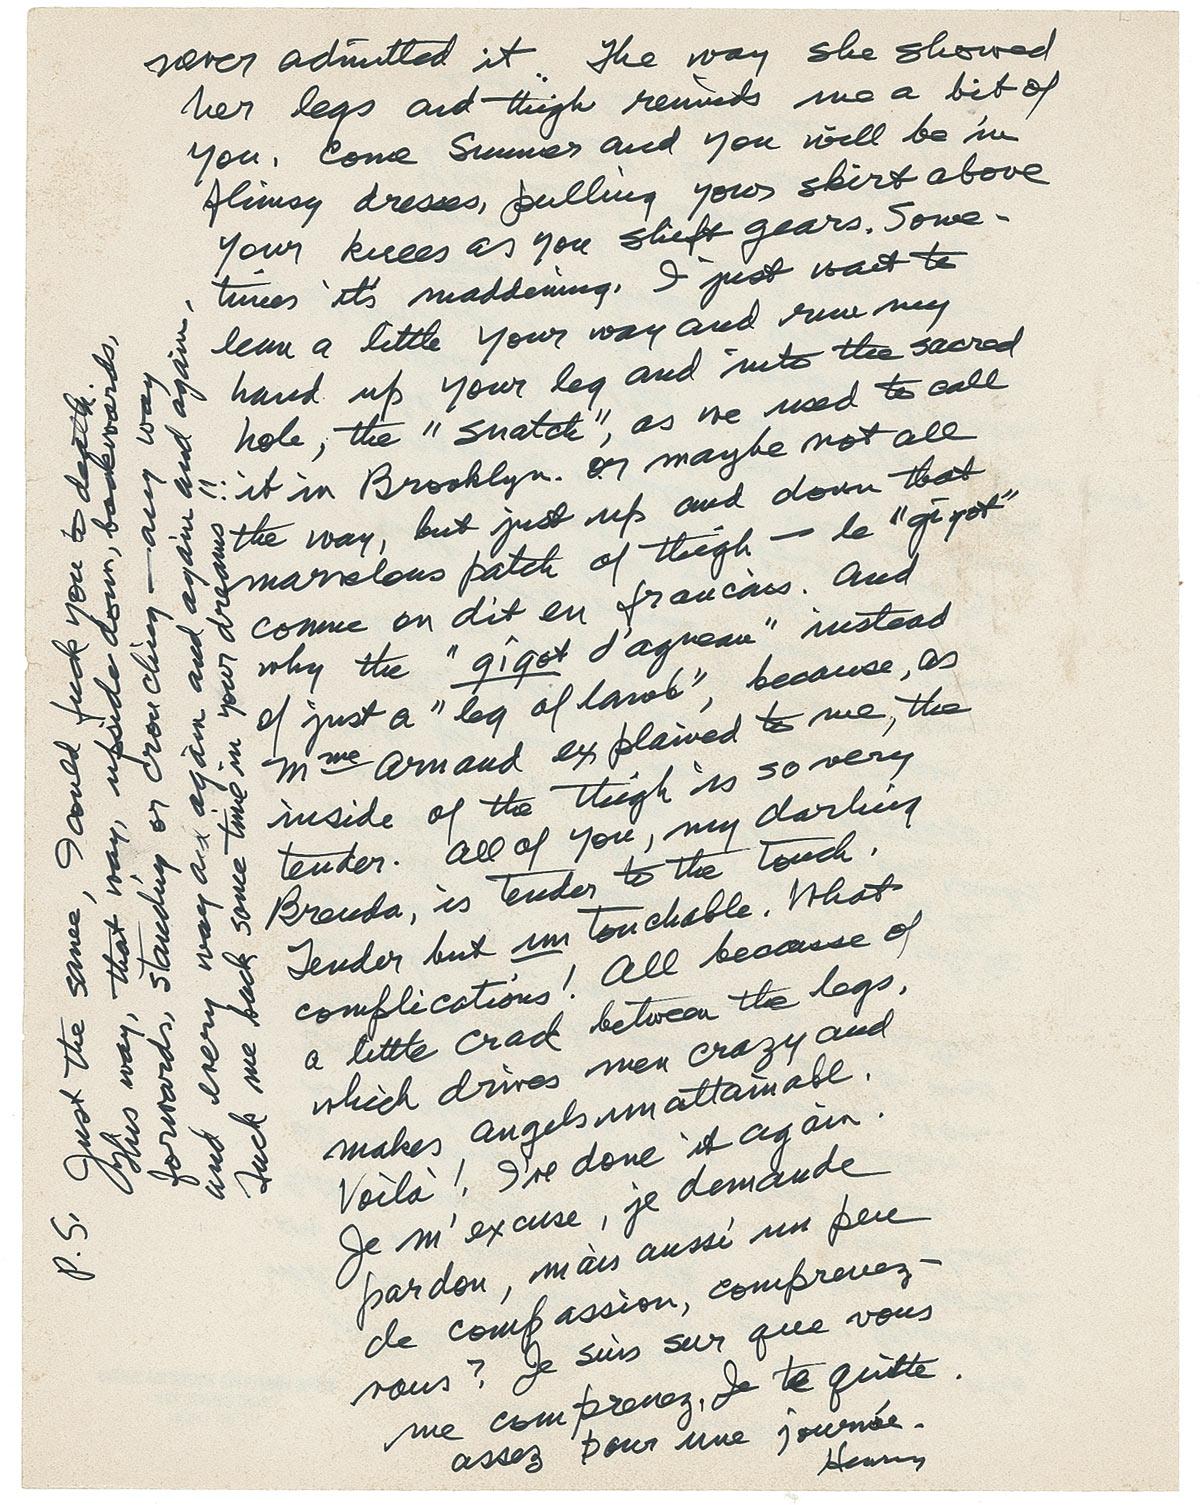 never admitted it. The way she showed
her legs and thigh reminds me a bit of
you. Come Summer and you will be in
flimsy dresses, pulling your skirt above
your knees as you shift gears. Some-
times it's maddening. I just want to
lean a little your way and run my
hand up your leg and into the sacred
hole, the "snatch", as we used to call
it in Brooklyn. Or maybe not all
the way, but just up and down that
marvelous patch of thigh — le "gigot"
comme on dit en francais. And
why the "gigot d'agneau" instead
of just a "leg of lamb", because, as
Mme Armand explained to me, the
inside of the thigh is so very
tender. All of you, my darling
Brenda, is tender to the touch.
Tender but un touchable. What
complications! All because of
a little crack between the legs,
which drives men crazy and
makes angels unattainable.
Voilà! I've done it again.
Je m'excuse, je demande
pardon, mais aussi un peu
de compassion, comprenez-
vous? Je suis sur que vous
me comprenez. Je te quitte.
assez pour une journée.
Henry
P.S. Just the same, I could fuck you to death.
Oh this way, that way, upside down, backwards,
forwards, standing or crouching — any way
and every way and again and again and again and again.
Fuck me back some time in your dreams!!